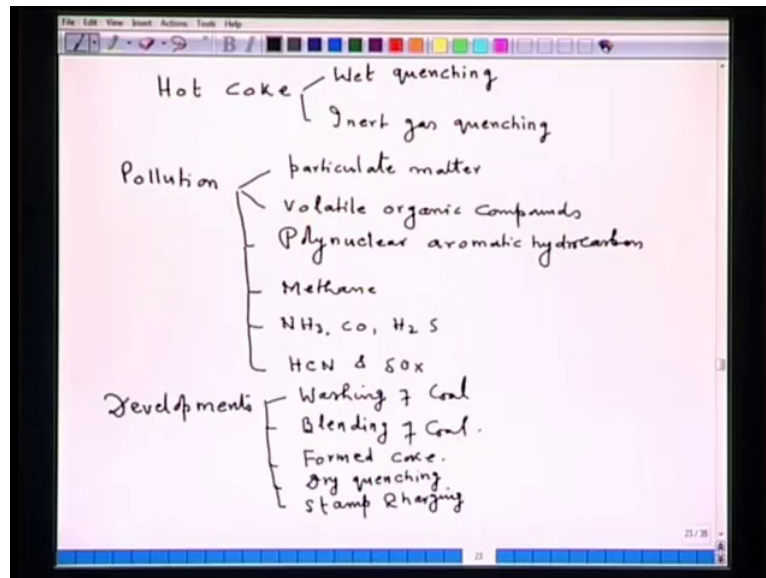 File Edit View Insert Actions Tools Help
Hot coke
Wet quenching
Inert gas quenching
Pollution
particulate matter
Volatile organic compounds
Polynuclear aromatic hydrocarbon
Methane
NH3, CO, H2S
HCN & SOX
Developments
Washing of Coal
Blending of Coal.
Formed coke.
Dry quenching
Stamp Charging
23/35
23